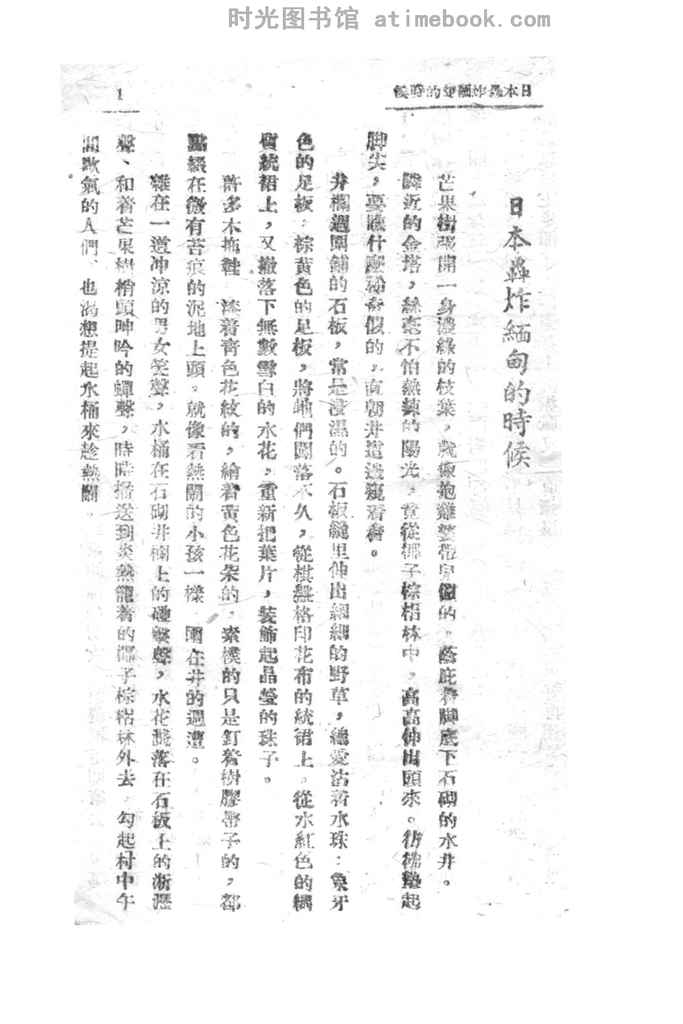 时光图书馆 atimebook.com
日本轟炸緬甸的時候
1
日本轟炸緬甸的時候
芒果樹張開一身濃綠的枝葉，就像抱雞婆帶兒的，蔭庇着脚底下石砌的水井。
隣近的金塔，絲毫不怕熱辣的陽光，竟從椰子棕梠林中，高高伸出頭來。彷彿墊起
脚尖，要瞧什麼稀奇似的，直朝井這邊窺看着。
井欄週圍鋪的石板，常是浸濕的。石板縫里伸出細細的野草，總愛沾着水珠：象牙
色的足板，棕黃色的足板，將牠們闖落不久，從棋盤格印花布的統裙上，從水紅色的綢
質統裙上，又撒落下無數雪白的水花，重新把葉片，裝飾起晶瑩的珠子。
許多木拖鞋，漆着青色花紋的，繪着黃色花朵的，素樸的只是釘着樹膠帶子的，都
點綴在微有苔痕的泥地上頭。就像看熱鬧的小孩一樣，圍在井的週遭。
雜在一道冲涼的男女笑聲，水桶在石砌井欄上的碰擊聲，水花濺落在石板上的淅瀝
聲、和着芒果樹梢頭呻吟的蟬聲，時時播送到炎熱籠着的椰子棕梠林外去，勾起村中午
間歇氣的人們，也渴想提起水桶來趁熱鬧。